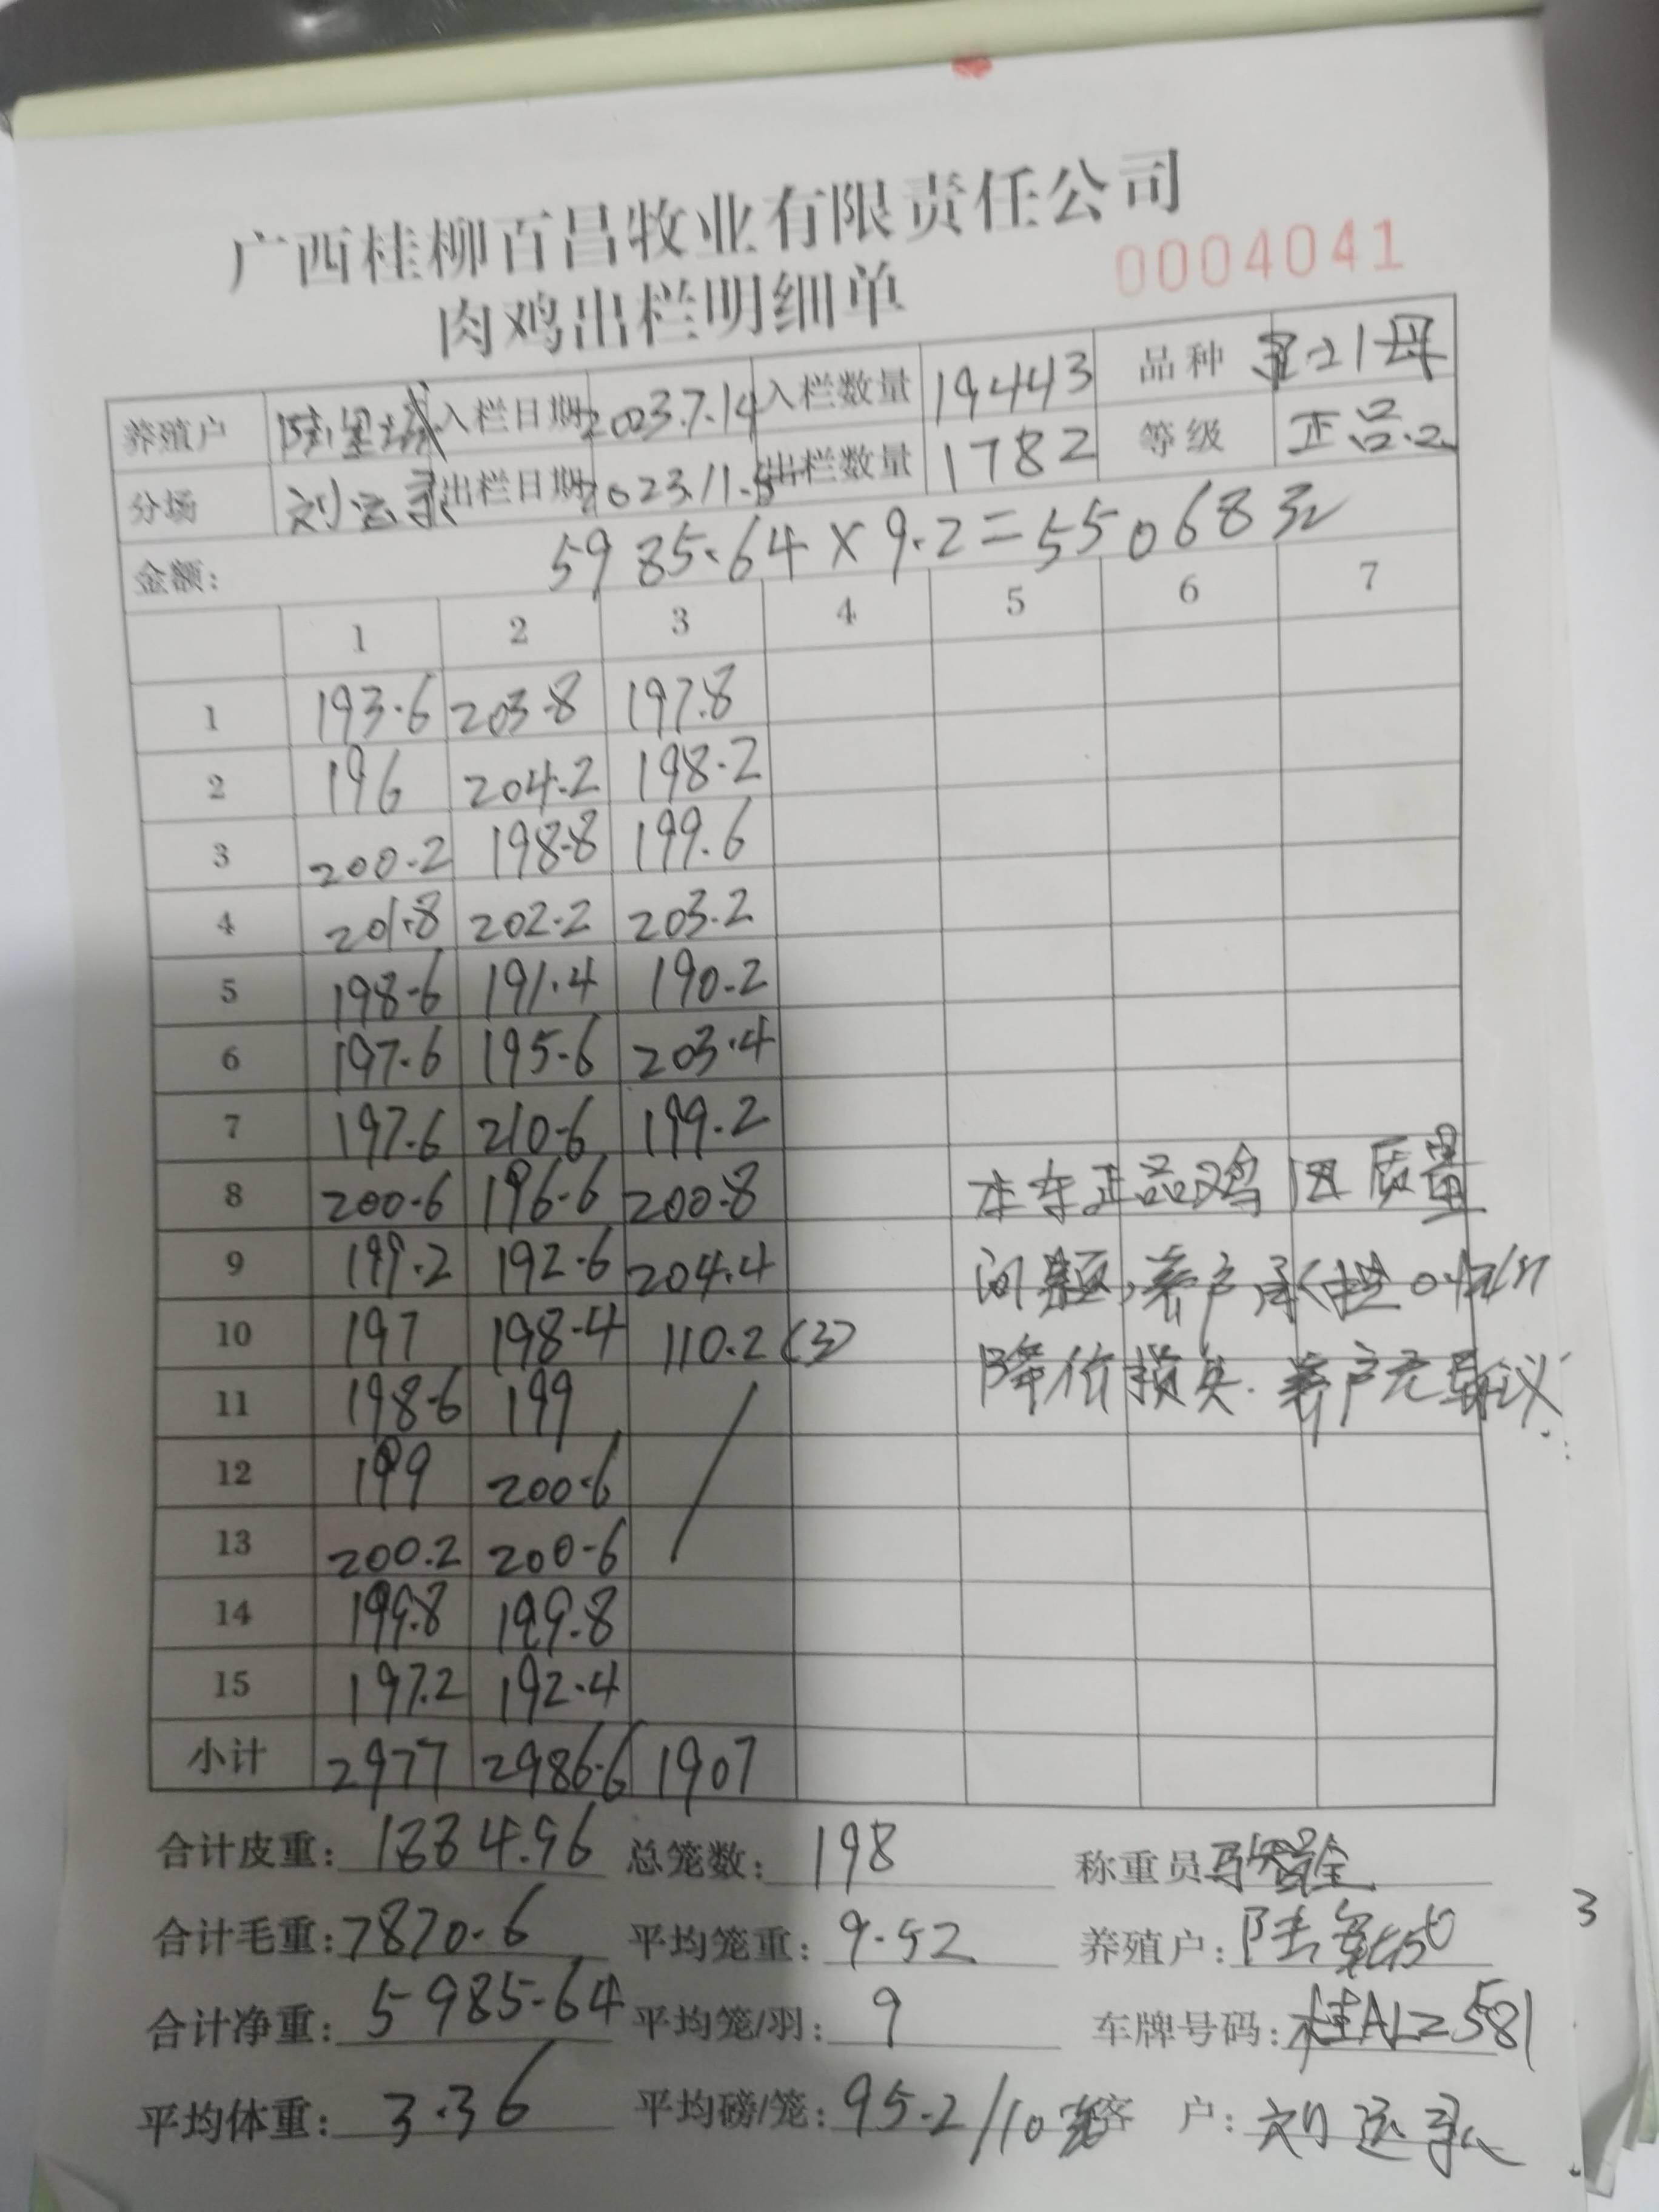 广西桂柳百昌牧业有限责任公司
肉鸡出栏明细单 0004041
养殖户 入栏日期 2023.7.14 入栏数量 19443 品种 21母
分场 刘运 出栏日期 2023.11. 出栏数量 1782 等级 正品.2
金额: 5985.64×9.2=55068元
1 2 3 4 5 6 7
1 193.6 203.8 197.8
2 196 204.2 198.2
3 200.2 198.8 199.6
4 201.8 202.2 203.2
5 198.6 191.4 190.2
6 197.6 195.6 203.4
7 197.6 210.6 199.2
8 200.6 196.6 200.8 本车正品鸡因质量
9 199.2 192.6 204.4 问题,养户承担
10 197 198.4 110.2(3) 降价损失.养户无异议
11 198.6 199
12 199 200.6
13 200.2 200.6
14 199.8 199.8
15 197.2 192.4
小计 2977 2986.6 1907
合计皮重: 1884.96 总笼数: 198 称重员
合计毛重: 7870.6 平均笼重: 9.52 养殖户: 陆 3
合计净重: 5985.64 平均笼/羽: 9 车牌号码: 桂ALZ581
平均体重: 3.36 平均磅/笼: 95.2/10 客 户: 刘运